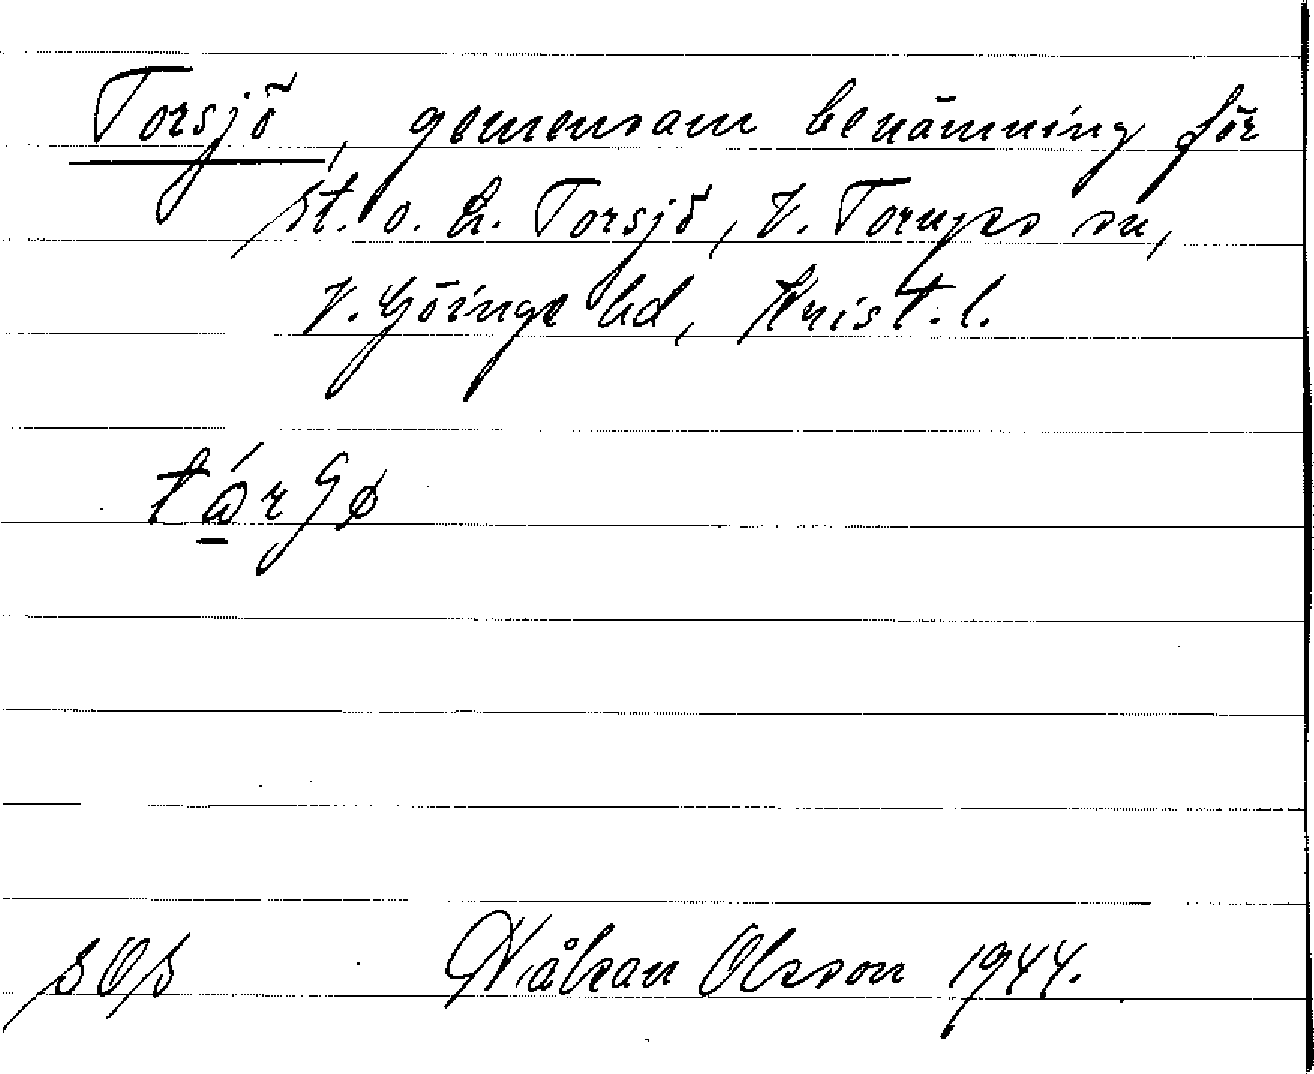 Torsjö, gemensam benämning för
St. o. L. Torsjö, V. Torups sn,
V. Göinge hd, Krist. l.
Håkan Olsson 1944.